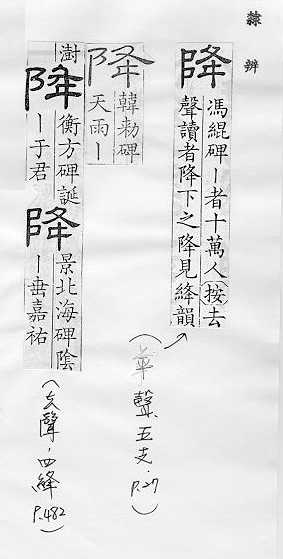 隸辨
降
馮緄碑ー者十萬人按去
聲讀者降下之降見絳韻
(上平聲.五支.P.27)
降
韓勑碑
天雨ー
澍
降
衡方碑誕
ー于君
降
景北海碑陰
ー垂嘉祐
(去聲.四絳P.482)